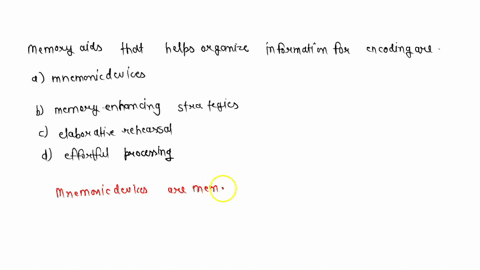 Memory aids that helps organize information for encoding are.
a) mnemonic devices
b) memory-enhancing strategics
c) elaborative rehearsal
d) effortful processing
Mnemonic devices are mem.